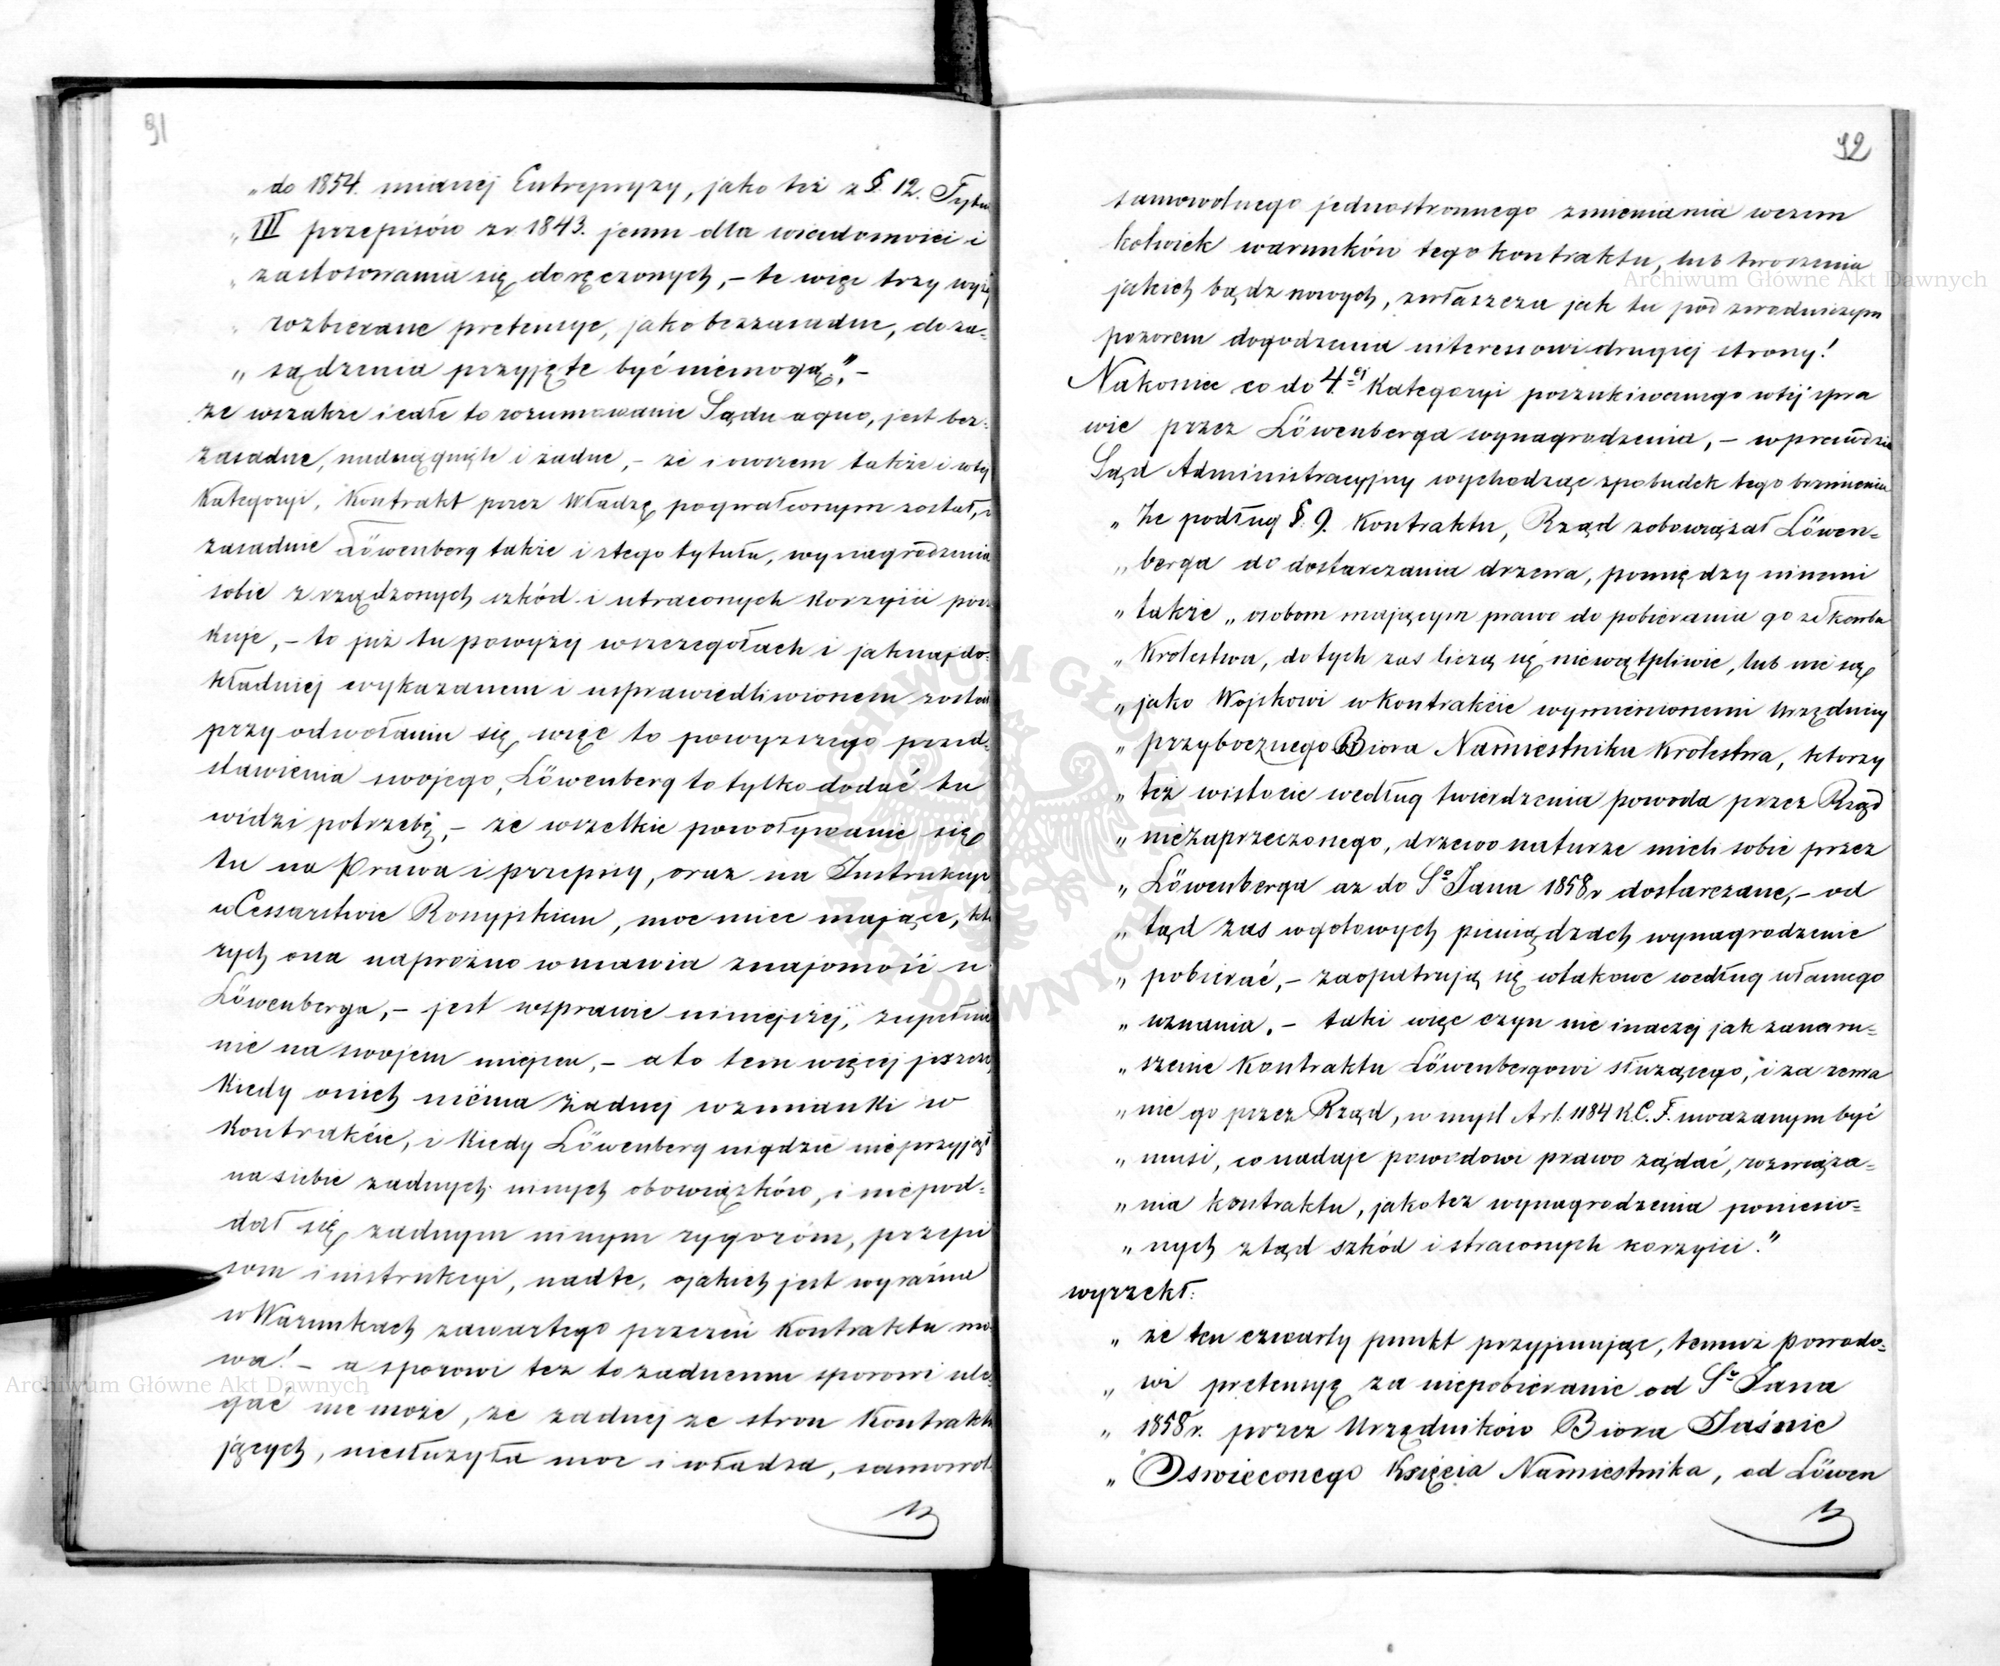 91
„ do 1854. mianej Entrepryzy, jako też z §. 12. Tytu
„ III przepisów z r. 1843. jemu dla wiadomości i
„ zastosowania się doręczonych, – te więc trzy wyżej
„ rozbierane pretensye, jako bezzasadne, do za=
„ sądzenia przyjęte być niemogą”, –
że wszakże i całe to rozumowanie Sądu a quo, jest bez=
zasadne, naciągnięte i żadne, – że i owszem także i w tej
Kategoryi, Kontrakt przez Władzę pogwałconym został, i
zasadnie Löwenberg także i z tego tytułu, wynagrodzenia
sobie zrządzonych szkód i utraconych korzyści poszu
kuje, – to już tu powyżej w szczegółach i jaknajdo=
kładniej wykazanem i usprawiedliwionem zostało
przy odwołaniu się więc to powyższego przed=
stawienia swojego, Löwenberg to tylko dodać tu
widzi potrzebę, – że wszelkie powoływanie się
tu na Prawa i przepisy, oraz na Instrukcye
w Cesarstwie Rossyjskiem, moc mieć mające, któ
rych ona napróżno wmawia znajomość w
Löwenberga, – jest w sprawie niniejszej, zupełnie
nie na swojem miejscu, – a to tem więcej przeto,
kiedy o nich niéma żadnej wzmianki w
Kontrakcie, i kiedy Löwenberg nigdzie nie przyjął
na siebie żadnych innych obowiązków, i niepod=
dał się żadnym innym rygorom, przepi
som i instrukcyi, nad te, o jakich jest wyraźna
w Warunkach zawartego przezeń Kontraktu mo
wa! – a sporowi też to żadnemu sporowi ule=
gać nie może, że żadnej ze stron Kontraktu
jących, niesłużyła moc i władza, samowol
92
samowolnego jednostronnego zmieniania w czem
kolwiek warunków tego kontraktu, lub tworzenia
jakich bądź nowych, zwłaszcza jak tu pod zwodniczym
pozorem dogodzenia interesowi drugiej strony!
Nakoniec co do 4.ej Kategoryi poszukiwanego w tej spra
wie przez Löwenberga wynagrodzenia, – wprawdzie
Sąd Administracyjny wychodząc z pobudek tego brzmienia
„ Że podług §. 9. Kontraktu, Rząd zobowiązał Löwen=
„ berga do dostarczania drzewa, pomiędzy innemi
„ także „ osobom mającym prawo do pobierania go ze Skarbu
„ Królestwa, do tych zaś liczą się niewątpliwie, lub nie są
„ jako Wojskowi w Kontrakcie wymienionemi Urzędnicy
„ przybocznego Biora Namiestnika Królestwa, którzy
„ też w istocie według twierdzenia powoda przez Rząd
„ niezaprzeczonego, drzewo w naturze mieli sobie przez
„ Löwenberga aż do S.º Jana 1858 r. dostarczane, – od
„ tąd zaś w gotowych pieniądzach wynagrodzenie
„ pobierać, – zaopatrują się w takowe według własnego
„ uznania. – taki więc czyn nie inaczej jak za naru=
„ szenie Kontraktu Löwenbergowi służącego, i za zerwa
„ nie go przez Rząd, w myśl Art. 1184 K.C.F. uważanym być
„ musi, co nadaje powodowi prawo żądać, rozwiąza=
„ nia kontraktu, jako też wynagrodzenia poniesio=
„ nych ztąd szkód i straconych korzyści.”
wyrzekł:
„ że ten czwarty punkt przyjmując, temuż powodo=
„ wi pretensyę za niepobieranie od S.º Jana
„ 1858 r. przez Urzędników Biora Jaśnie
„ Oświeconego Księcia Namiestnika, od Löwen
Archiwum Główne Akt Dawnych
Archiwum Główne Akt Dawnych
ARCHIWUM GŁÓWNE AKT DAWNYCH